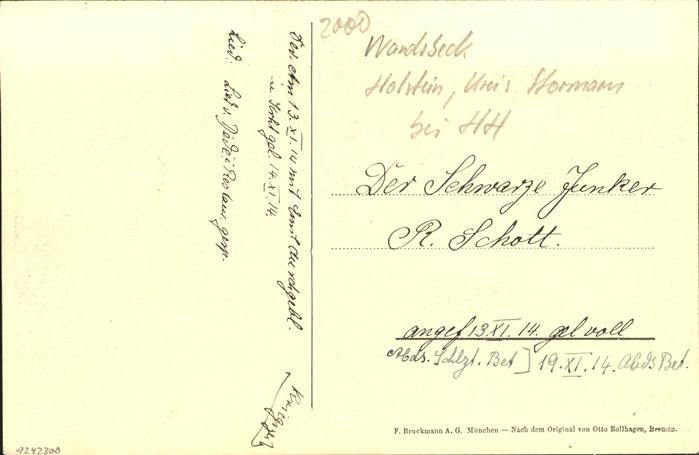 2000
Wandsbeck
Holstein, Kreis Stormarn
bei HH
Der Schwarze Junker
R. Schott.
angef 13.XI.14. gel voll
Abds. Schlzt. Bet ] 19.XI.14. Abds Bet.
F. Bruckmann A. G. München — Nach dem Original von Otto Bollhagen, Bremen.
13.XI.14 mit durchgebl.
gel. 14.XI.14.
Lied. Lied v. gesp.
9242300